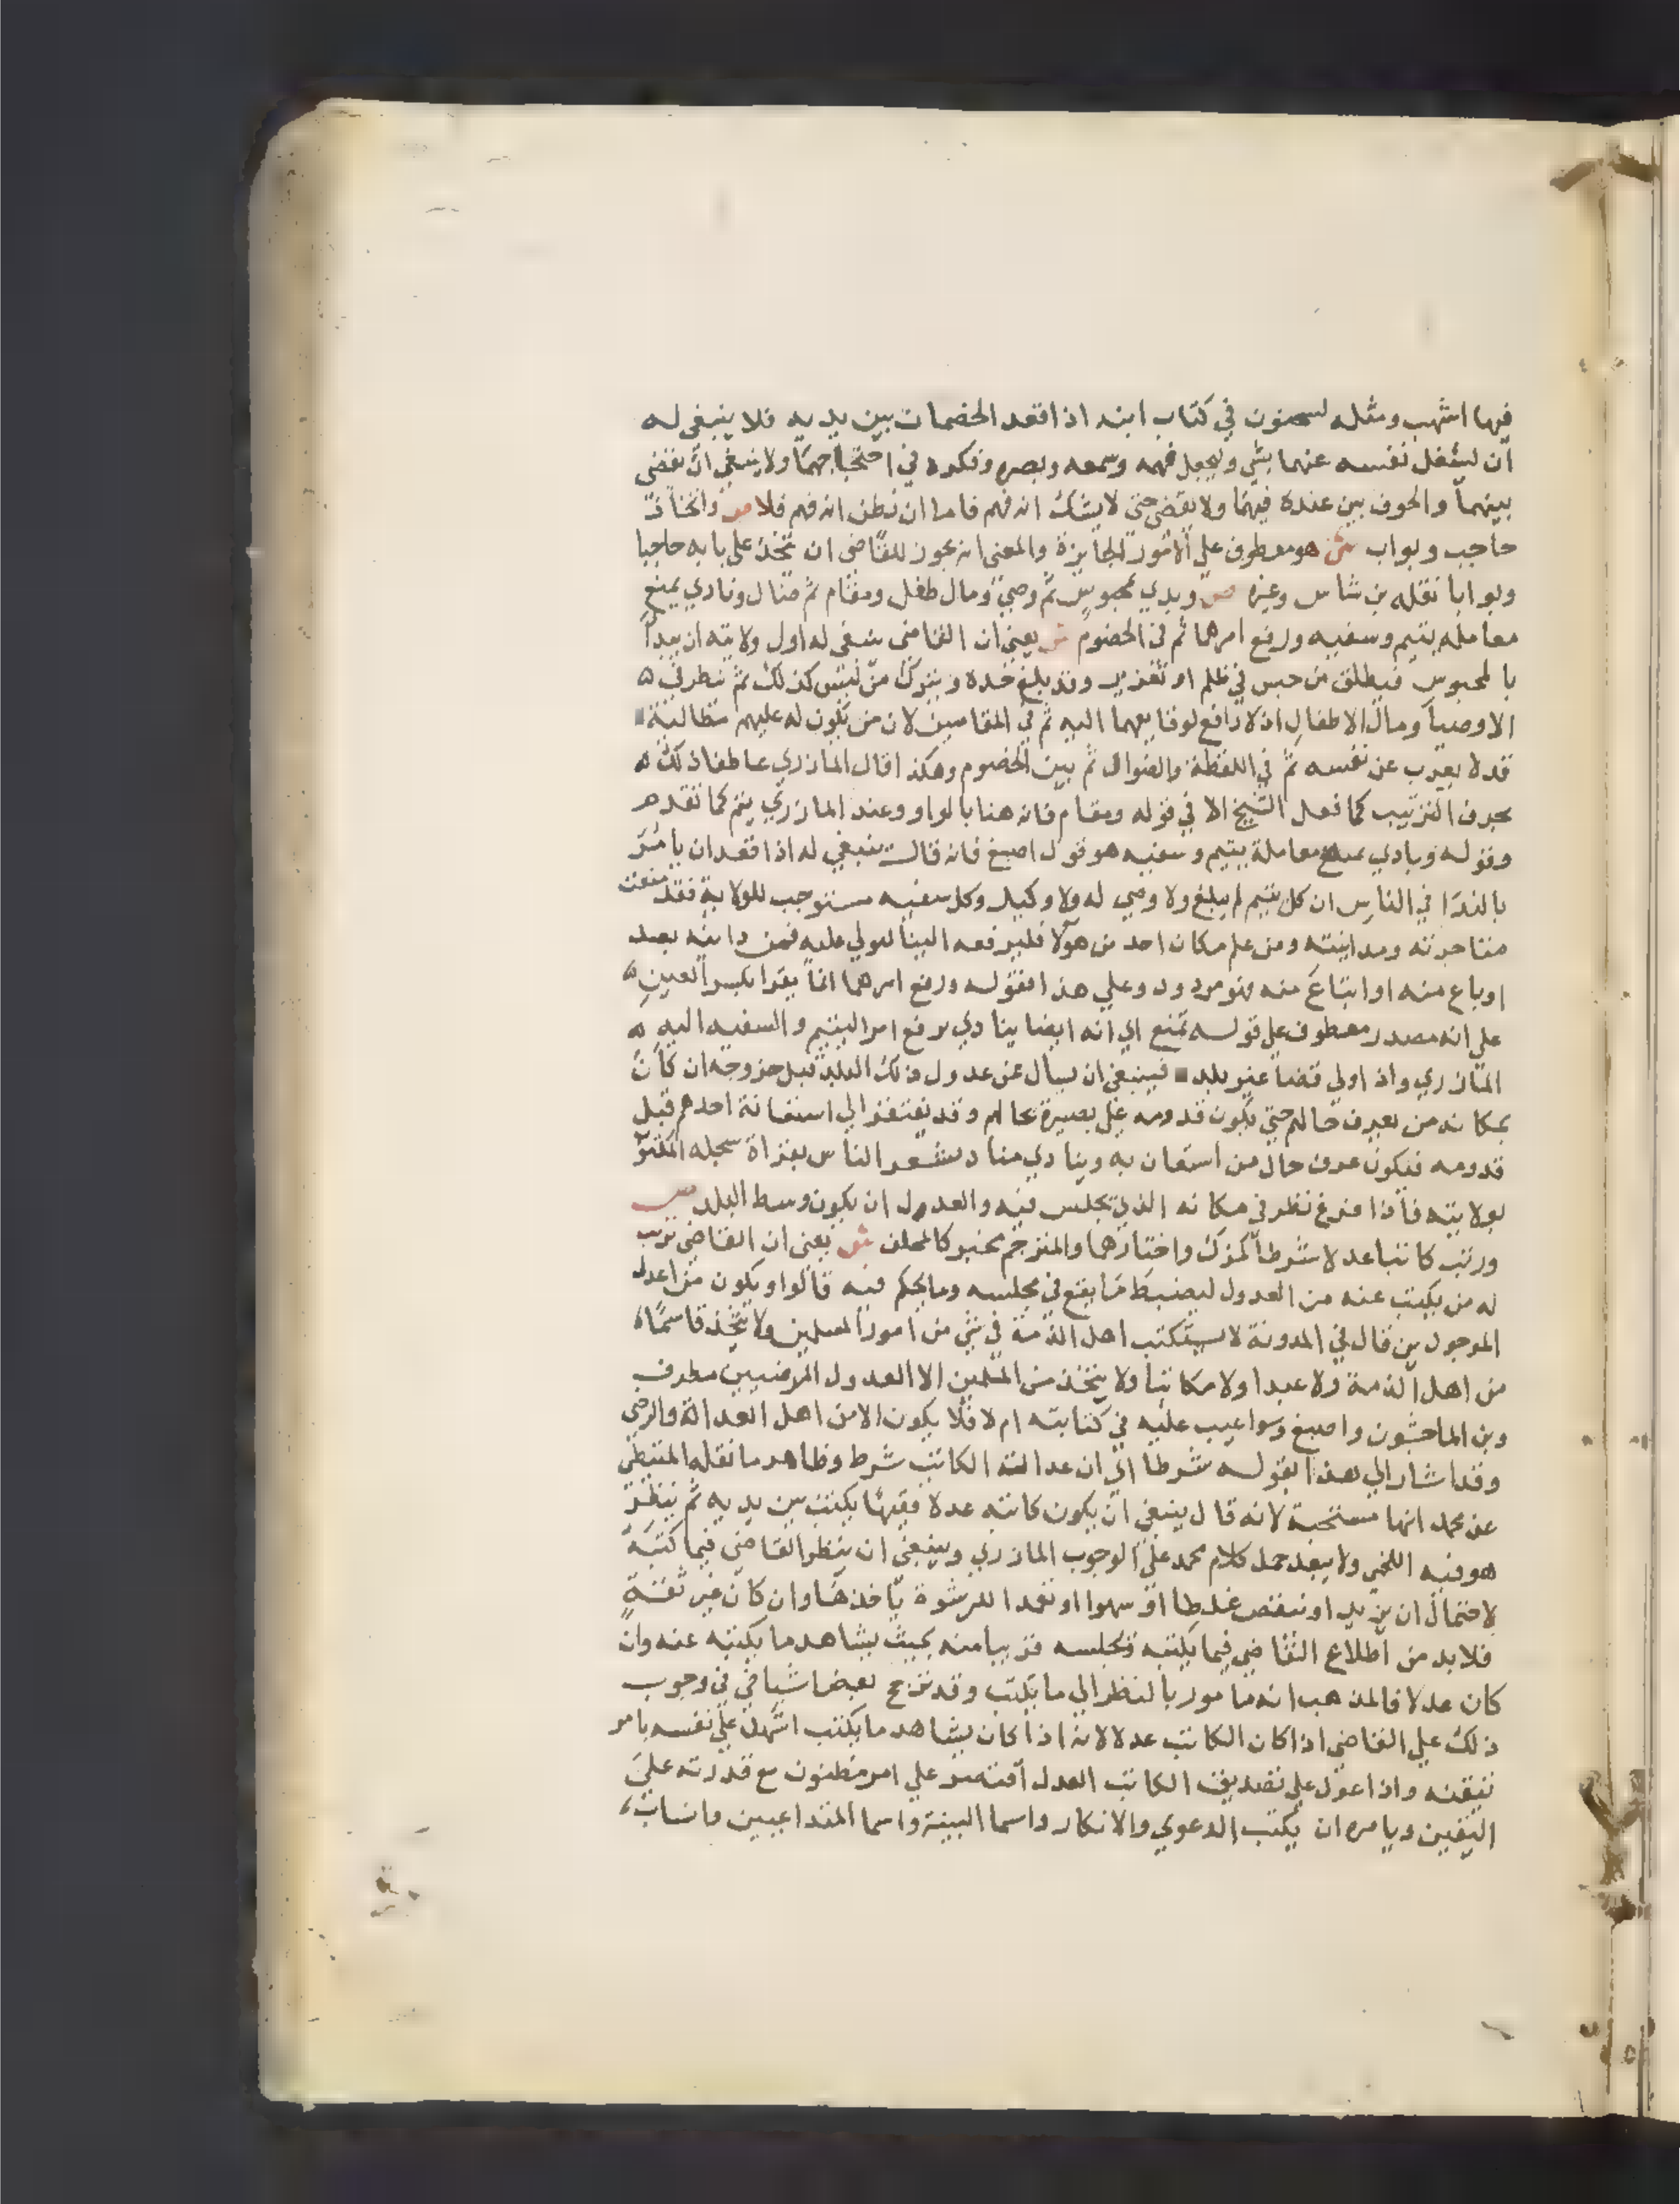 فيها اشهب ومثله لسحنون في كتاب ابنه اذا قعد الخصمات بين يديه فلا ينبغي له
ان يشغل نفسه عنهما بشي ويجعل فهمه وسمعه وبصره وفكره في احتجاجهما ولا ينبغي ان يقضي
بينهما والخوف بين عنده فيهما ولا يقضي حتى لا يشك انه فهم فاما ان يظن انه فهم فلا ص واتخاذ
حاجب وبواب ش هو معطوف علي الامور الجايزة والمعني انه يجوز للقاضي ان يتخذ علي بابه حاجبا
وبوابا نقله بن شاس وغيره ص وبدي بمحبوس ثم وصي ومال طفل ومقام ثم ضال ونادي بمنع
معامله يتيم وسفيه ورفع امرهما ثم في الخصوم ش يعني ان القاضي ينبغي له اول ولايته ان يبدا
بالمحبوس فيطلق من حبس في ظلم او تعزير وقد بلغ حده ويترك من ليس كذلك ثم ينظر في
الاوصيا ومال الاطفال اذ لا رافع لوقايعهما اليه ثم في المقامين لان من يكون له عليهم مطالبة
قد لا يعرب عن نفسه ثم في اللقطة والضوال ثم بين الخصوم وهكذا قال المازري عاطفا ذلك
بحرف الترتيب كما فعل الشيخ الا في قوله ومقام فانه هنا بالواو وعند المازري بثم كما تقدم
وقوله وينادي بمنع معاملة يتيم وسفيه هو قول اصبغ فانه قال ينبغي له اذا قعد ان يامر
بالندا في الناس ان كل يتيم لم يبلغ ولا وصي له ولا وكيل وكل سفيه مستوجب للولاية فقد منعت
متاجرته ومداينته ومن علم مكان احد من هولا فليرفعه الينا لنولي عليه فمن داينه بعد
او باع منه او ابتاع منه فهو مردود وعلي هذا فقوله ورفع امرهما انما يقرا بكسر العين
علي انه مصدر معطوف علي قوله بمنع اي انه ايضا ينادي برفع امر اليتيم والسفيه اليه
المازري واذا ولي قضا غير بلده فينبغي ان يسال عن عدول ذلك البلد قبل خروجه ان كان
بمكانه من يعرف حالهم حتي يكون قدومه علي بصيرة بحالهم وقد يفتقر الي استعانة احدهم قبل
قدومه فيكون عرف حال من استعان به وينادي مناد يشعر الناس بقراة سجله المكتوب
بولايته فاذا فرغ نظر في مكانه الذي يجلس فيه والعدول ان يكون وسط البلد ص
ورتب كاتبا عدلا شرطا كمزك واختارهما والمترجم مخبر كالمحلف ش يعني ان القاضي يرتب
له من يكتب عنه من العدول ليضبط ما يقع في مجلسه وما يحكم فيه قالوا ويكون من اعدل
الموجودين قال في المدونة لا يستكتب اهل الذمة في شي من امور المسلمين ولا يتخذ قاسما
من اهل الذمة ولا عبدا ولا مكاتبا ولا يتخذ من المسلمين الا العدول المرضيين مطرف
وبن الماجشون واصبغ وسوا عيب عليه في كتابته ام لا فلا يكون الا من اهل العدالة والرضي
وقد اشار الي هذا بقوله شرطا اي ان عدالة الكاتب شرط وظاهر ما نقله المتيطي
عن محمد انها مستحبة لانه قال ينبغي ان يكون كاتبه عدلا فقيها يكتب بين يديه ثم ينظر
هو فيه اللخمي ولا يبعد حمل كلام محمد علي الوجوب المازري وينبغي ان ينظر القاضي فيما كتبه
لاحتمال ان يزيد او ينقص غلطا او سهوا او تعمدا لرشوة ياخذها وان كان غير ثقة
فلا بد من اطلاع القاضي فيما يكتبه فيجلسه قريبا منه بحيث يشاهد ما يكتبه عنه وان
كان عدلا فالمذهب انه مامور بالنظر الي ما يكتب وقد ترجح بعض اشياخي في وجوب
ذلك علي القاضي اذا كان الكاتب عدلا لانه اذا كان يشاهد ما يكتب اشهد علي نفسه بامر
تيقنه واذا عول علي تصديق الكاتب العدل اقتصر علي امر مظنون مع قدرته علي
اليقين ويامره ان يكتب الدعوي والانكار واسما البينة واسما المتداعيين وانساب